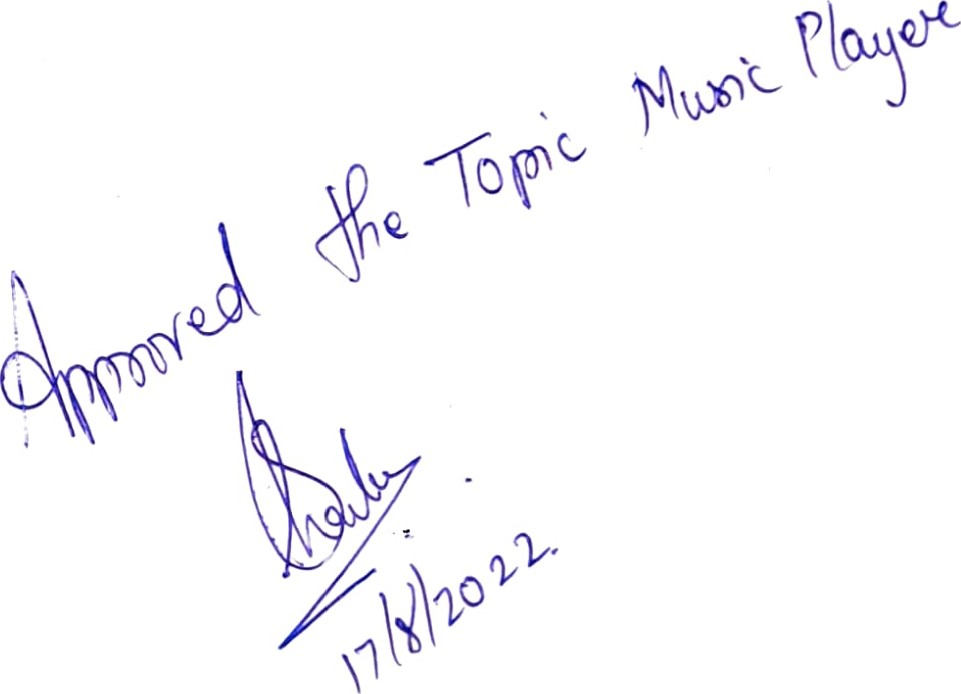 Approved the Topic Music Player
17/8/2022.